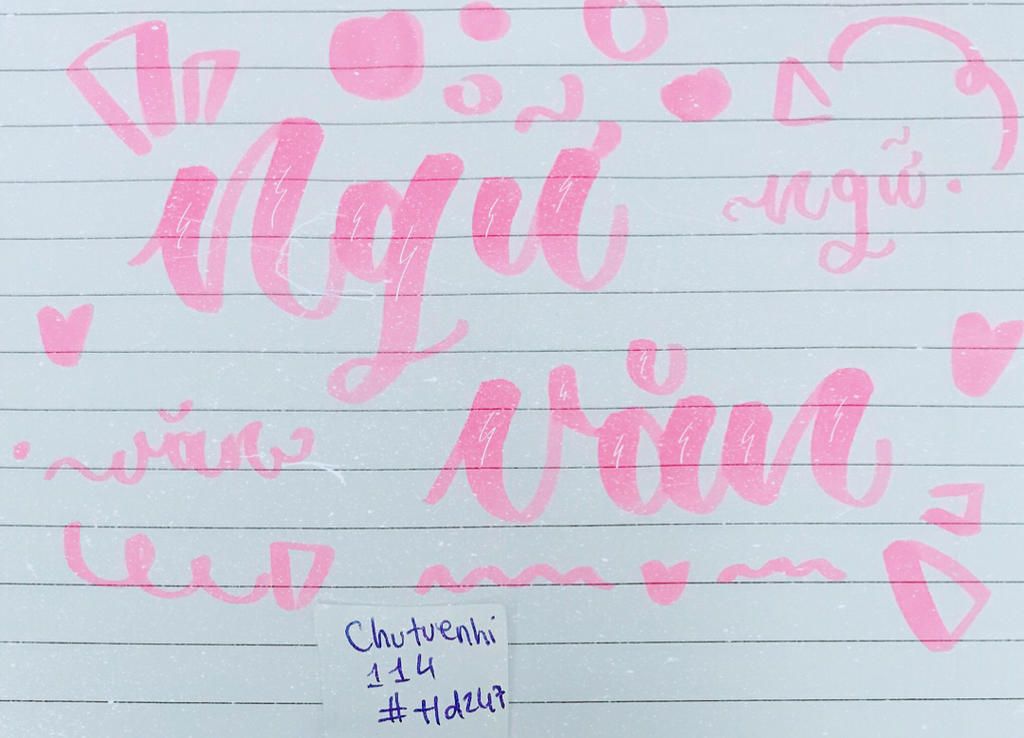 Ngữ
ngữ
văn
văn
Chutuenhi
114
#Hd247